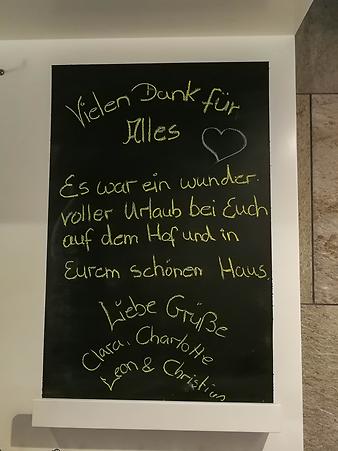 Vielen Dank für
Alles
Es war ein wunder-
voller Urlaub bei Euch
auf dem Hof und in
Eurem schönen Haus.
Liebe Grüße
Clara, Charlotte
Leon & Christian